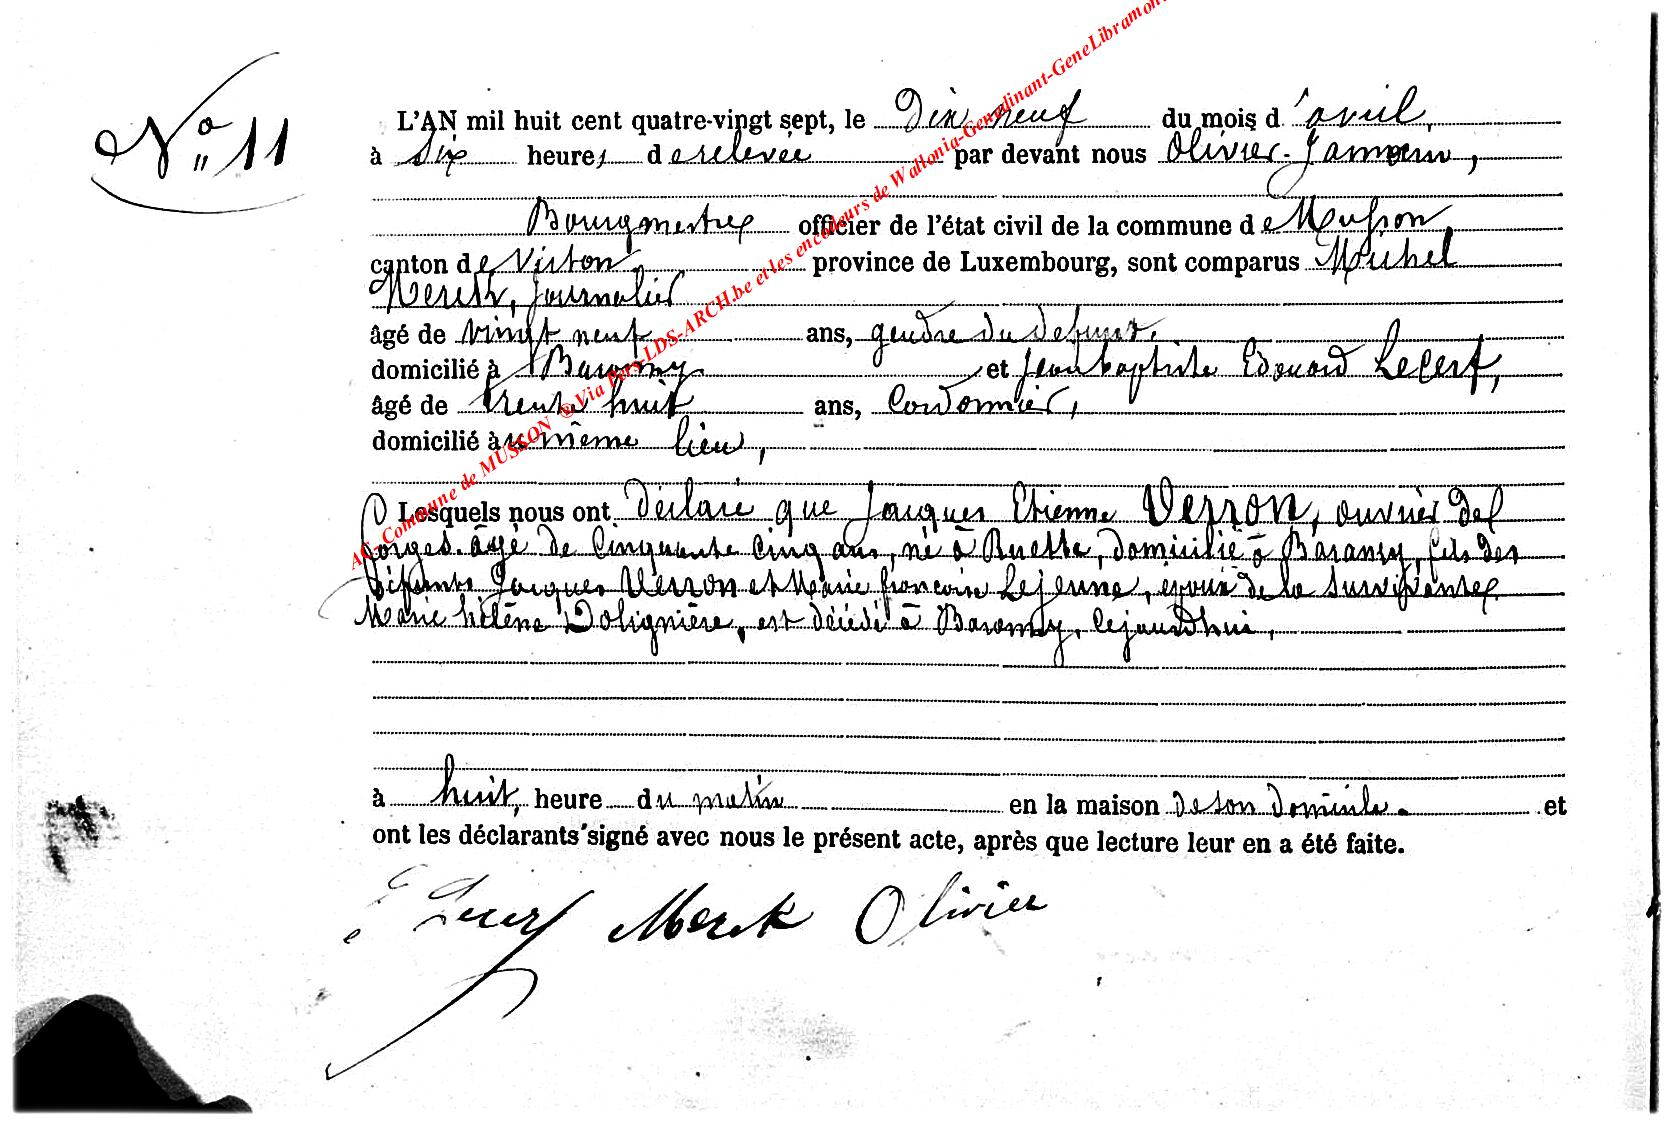 AC Commune de MUSSON ®Via Pers-LDS-ARCH.be et les encodeurs de Wallonia-Genedinant-GeneLibramont
N° 11
L'AN mil huit cent quatre-vingt sept, le Dix neuf du mois d'avril,
à Six heures de relevée par devant nous Olivier
Bourgmestre officier de l'état civil de la commune de Musson,
canton de Virton province de Luxembourg, sont comparus Michel
journalier
âgé de vingt neuf ans, gendre du defunt,
domicilié à Baranzy et Jean baptiste Edouard Lecerf,
âgé de trente huit ans, Cordonnier,
domicilié au même lieu,
Lesquels nous ont déclaré que Jacques Etienne Verron, ouvrier de
forges âgé de Cinquante Cinq ans, né à Ruette, domicilié à Baranzy, fils des
défunts Jacques Verron et Marie françoise Lejeune, époux de la survivante
Marie hélène Dolignière, est décédé à Baranzy, cejourdhui,
à huit, heure du matin en la maison de son domicile. et
ont les déclarants signé avec nous le présent acte, après que lecture leur en a été faite.
Lecerf Merck Olivier